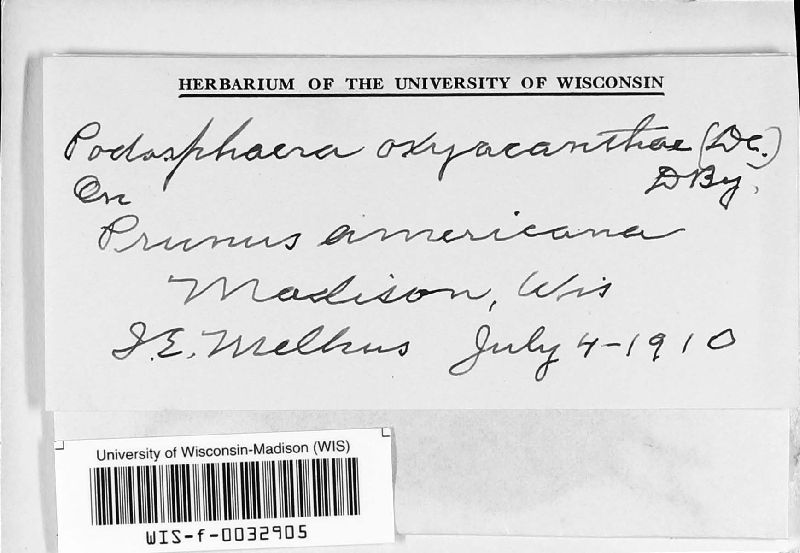 HERBARIUM OF THE UNIVERSITY OF WISCONSIN
Podosphaera oxyacanthae (Dc.)
DBy.
On
Prunus americana
Madison, Wis
I.E. Melhus July 4-1910
University of Wisconsin-Madison (WIS)
WIS-f-0032905